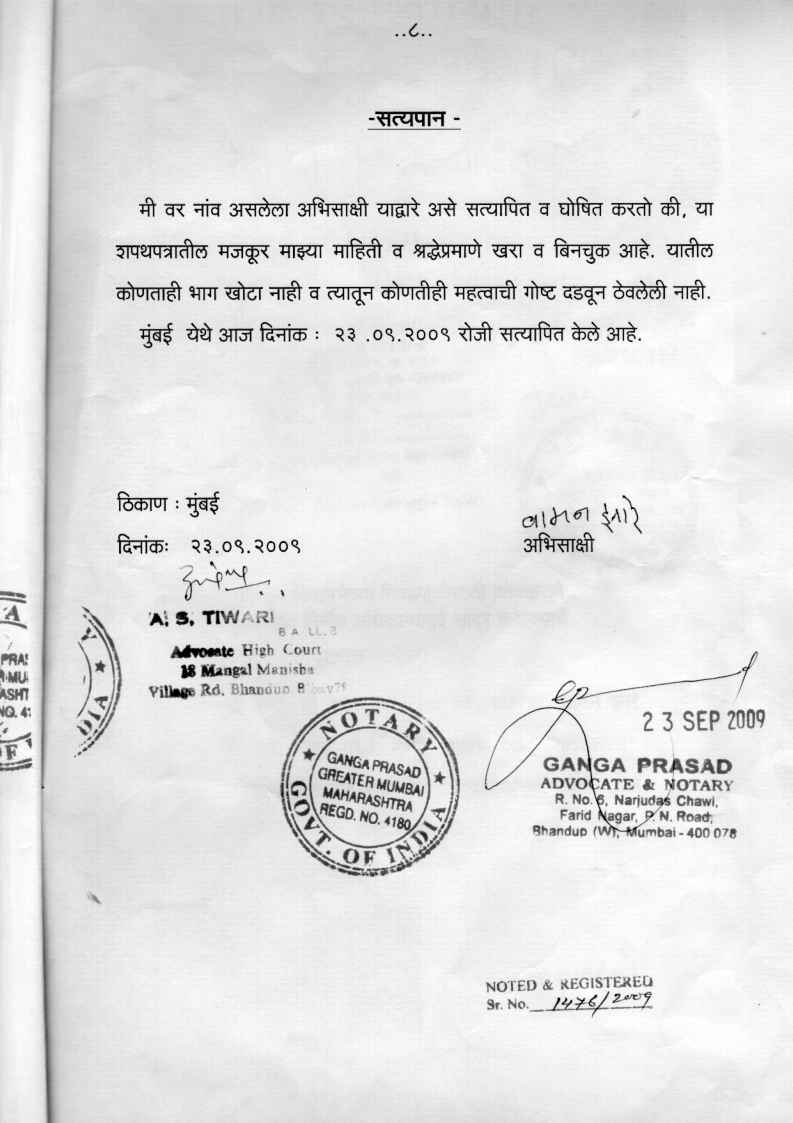 ..८..
-सत्यपान -
मी वर नांव असलेला अभिसाक्षी याद्वारे असे सत्यापित व घोषित करतो की, या
शपथपत्रातील मजकूर माझ्या माहिती व श्रद्धेप्रमाणे खरा व बिनचुक आहे. यातील
कोणताही भाग खोटा नाही व त्यातून कोणतीही महत्वाची गोष्ट दडवून ठेवलेली नाही.
मुंबई येथे आज दिनांक : २३ .०९.२००९ रोजी सत्यापित केले आहे.
ठिकाण : मुंबई
वामन
दिनांकः २३.०९.२००९
अभिसाक्षी
A. S. TIWARI
B A LL.B
Advocate High Court
18 Mangal Manisha
Village Rd, Bhandup
NOTARY
GANGA PRASAD
GREATER MUMBAI
MAHARASHTRA
REGD. NO. 4180
GOVT. OF INDIA
2 3 SEP 2009
GANGA PRASAD
ADVOCATE & NOTARY
R. No. 6, Narjudas Chawl,
Farid Nagar, P. N. Road,
Bhandup (W), Mumbai - 400 078
NOTED & REGISTERED
Sr. No. 1476/2009